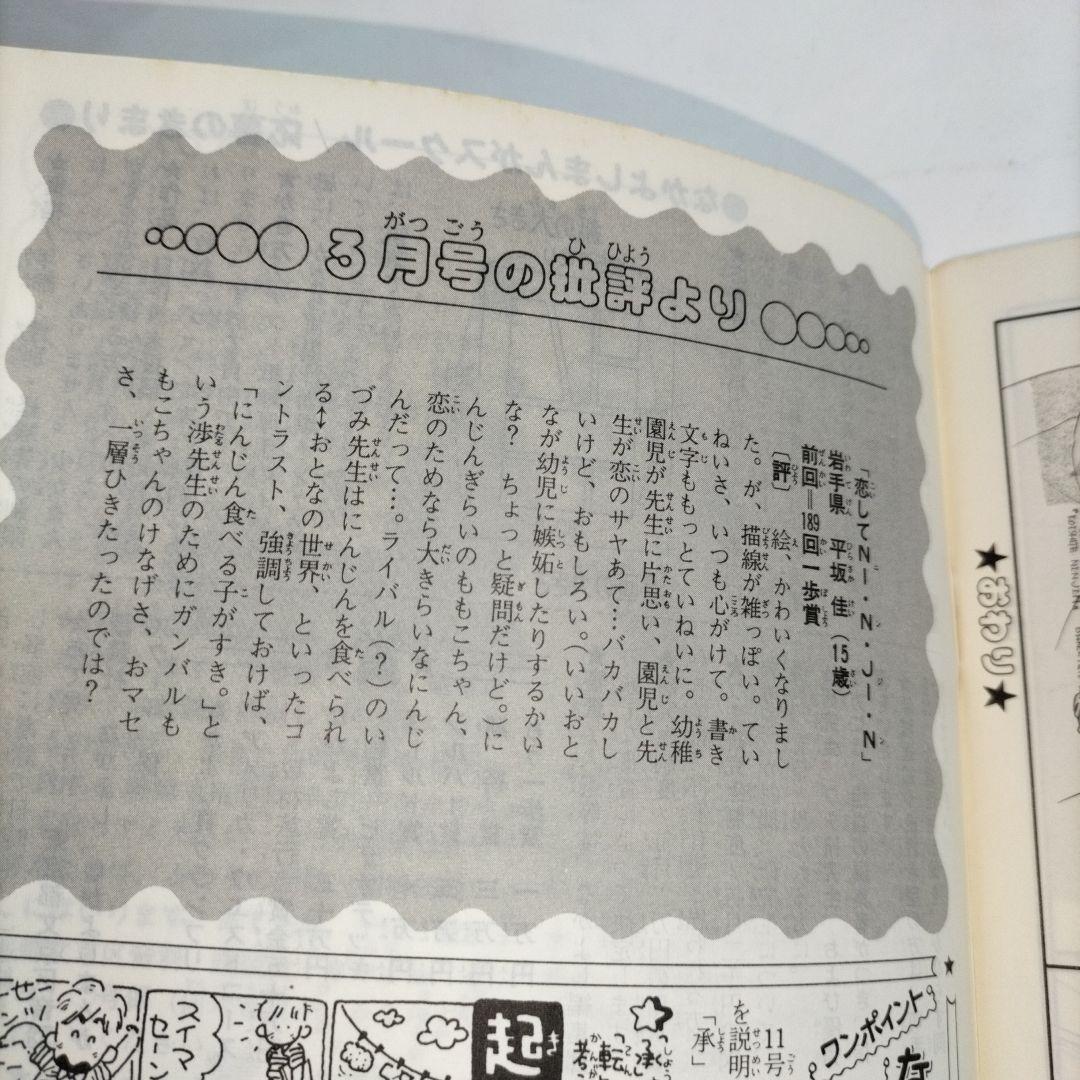 3月号の批評より
「恋してNI・N・JI・N」
岩手県 平坂 佳(15歳)
前回=189回一歩賞
〔評〕 絵、かわいくなりまし
た。が、描線が雑っぽい。てい
ねいさ、いつも心がけて。書き
文字ももっとていねいに。幼稚
園児が先生に片思い、園児と先
生が恋のサヤあて…バカバカし
いけど、おもしろい。(いいおと
なが幼児に嫉妬したりするかい
な? ちょっと疑問だけど。)に
んじんぎらいのももこちゃん、
恋のためなら大きらいなにんじ
んだって…。ライバル(?)のい
づみ先生はにんじんを食べられ
る↔おとなの世界、といったコ
ントラスト、強調しておけば、
「にんじん食べる子がすき。」と
いう渉先生のためにガンバルも
もこちゃんのけなげさ、おマセ
さ、一層ひきたったのでは?
★おわり★
ワンポイント
11号
を説明
「承」
起
スイマ
セーン